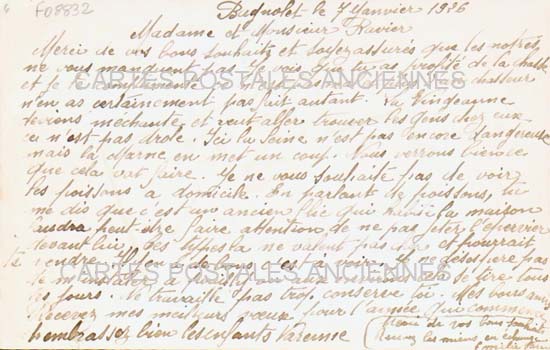 F08832
Bagnolet le 7 Janvier 1926
Madame et Monsieur Ravier
Merci de vos bons souhaits et soyez assurés que les nôtres
ne vous manquent pas. Je vois que tu as profité de la chasse
et je te complimente chasseur
n'en as certainement pas fait autant. La Vingeanne
devient méchante et veut aller trouver les gens chez eux
ce n'est pas drôle. Ici la Seine n'est pas encore dangereuse
mais la Marne en met un coup. Nous verrons bien ce
que cela va faire. Je ne vous souhaite pas de voir
les poissons à domicile. En parlant de poissons, tu
me dis que c'est un ancien qui la maison
faudra peut-être faire attention de ne pas jeter l'épervier
devant lui. Ces types là ne valent pas et pourrait
te vendre. c'est à voir. Je ne désespère pas
de
les jours. Ne travaille pas trop, conserve toi. Mes bons
Recevez mes meilleurs voeux pour l'année qui commence
embrassez bien les enfants Varenne
de vos bons souhaits
Recevez les miens en échange
CARTES POSTALES ANCIENNES
CARTES POSTALES ANCIENNES